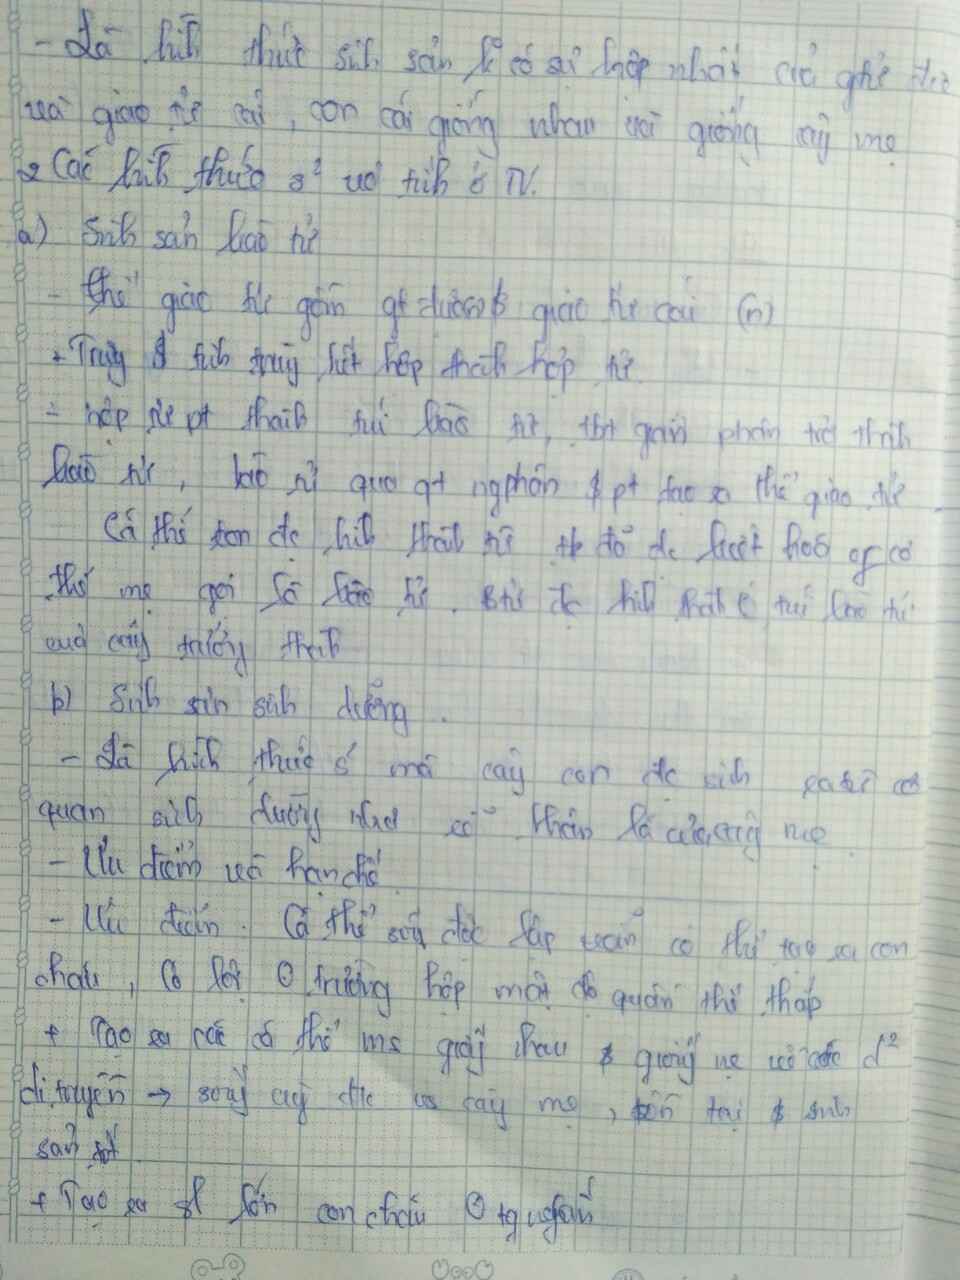 - Là hình thức sinh sản k có sự hợp nhất của giao tử đực
và giao tử cái, con cái giống nhau và giống cây mẹ
2 Các hình thức s² vô tính ở TV.
a) Sinh sản bào tử
- thể giao tử gồm gt đực giao tử cái (n)
+ Tinh trùng kết hợp thành hợp tử
- hợp tử pt thành túi bào tử, tbt giảm phân tạo thành
bào tử, bào tử qua gt ng phân pt tạo ra thể giao tử
Cá thể con đc hình thành từ tb đã đc biệt hoá of cơ
thể mẹ gọi là bào tử. Btử đc hình thành ở túi bào tử
của cây trưởng thành
b) Sinh sản sinh dưỡng.
- Là hình thức s² mà cây con đc sinh ra từ cơ
quan sinh dưỡng như củ thân lá của cây mẹ
- Ưu điểm và hạn chế
- Ưu điểm. Cá thể sống độc lập vẫn có thể tạo ra con
cháu, Có lợi trường hợp mật độ quần thể thấp
+ Tạo ra các cá thể ms giống nhau giống mẹ về các đ²
di truyền → cây mẹ, tồn tại sinh
sản tốt
+ Tạo ra sl lớn con cháu tg ngắn